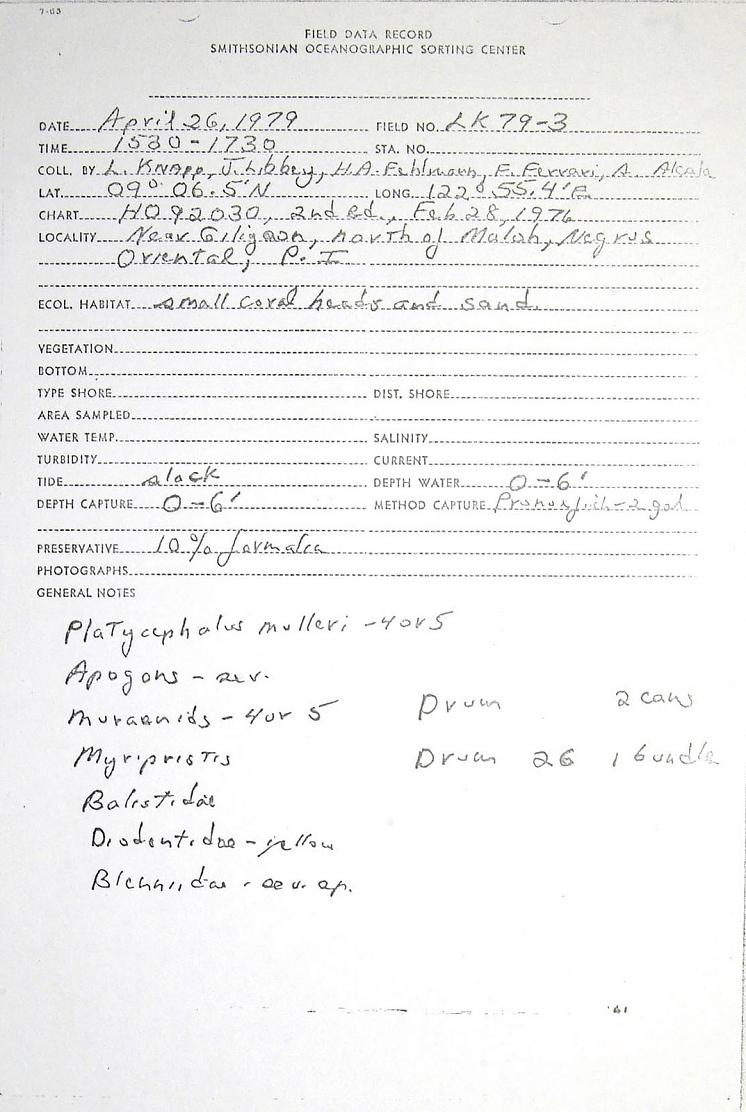 7-65
FIELD DATA RECORD
SMITHSONIAN OCEANOGRAPHIC SORTING CENTER
DATE April 26, 1979 FIELD NO. LK 79-3
TIME 1530-1730 STA. NO.
COLL. BY L. Knapp, J. Libbey, H.A. Fehlmann, F. Ferrari, A. Alcala
LAT. 09° 06.5'N LONG. 122° 55.4'E
CHART HO 92030, 2nd ed., Feb 28, 1976
LOCALITY Near Giligaon, north of Maloh, Negros
Oriental, P. I
ECOL. HABITAT small coral heads and sand.
VEGETATION
BOTTOM
TYPE SHORE DIST. SHORE
AREA SAMPLED
WATER TEMP. SALINITY
TURBIDITY CURRENT
TIDE slack DEPTH WATER 0-6'
DEPTH CAPTURE 0-6' METHOD CAPTURE Pronoxfish-2 gal
PRESERVATIVE 10% formalin
PHOTOGRAPHS
GENERAL NOTES
Platycephalus mulleri - 4 or 5
Apogons - sev.
Muraenids - 4 or 5 Drum 2 cans
Myripristis Drum 26 1 bundle
Balistidae
Diodontidae - yellow
Blenniidae - sev. sp.